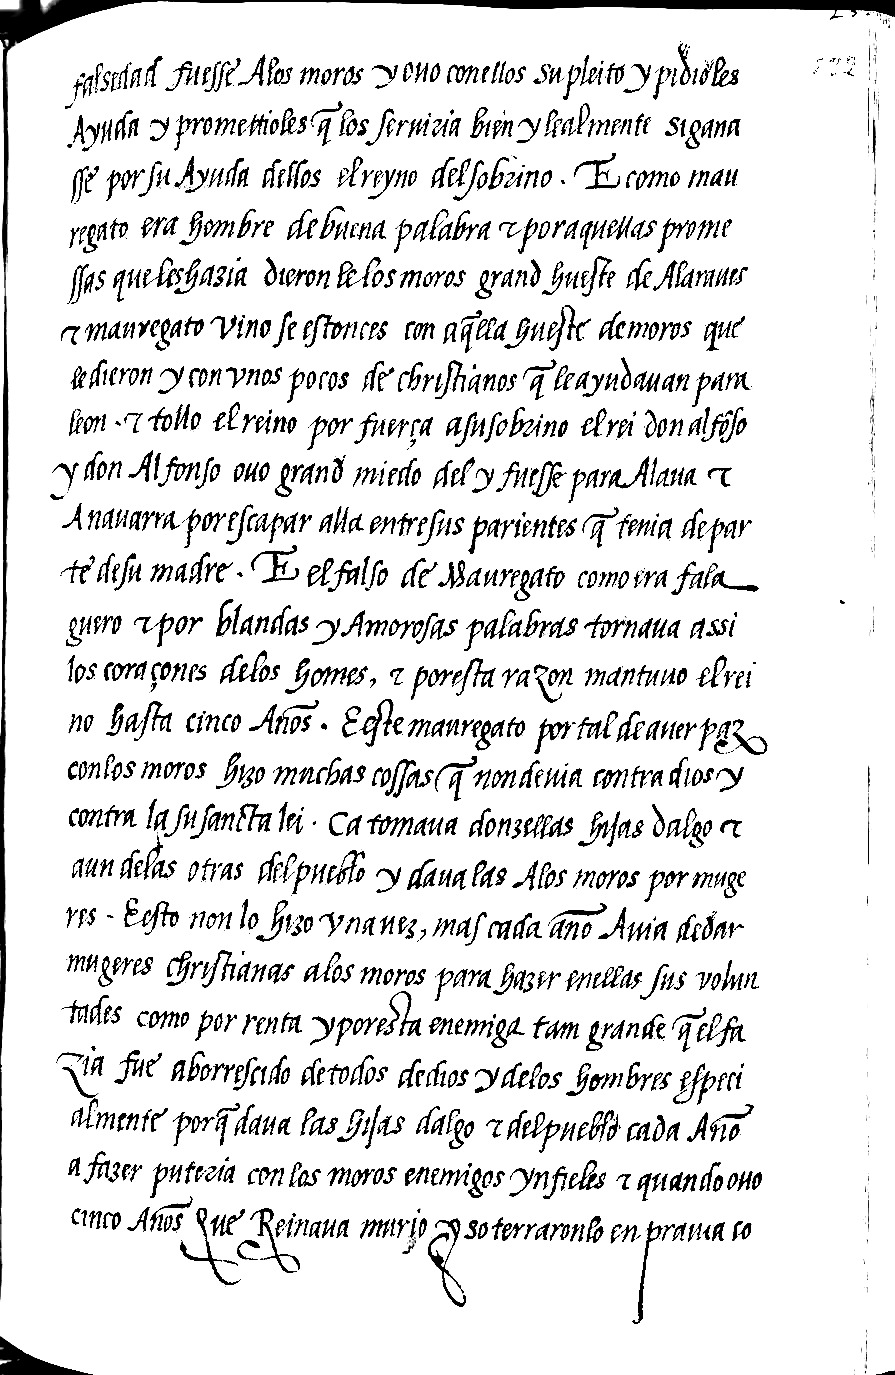 falsedad fuesse Alos moros y ouo conellos su pleito y pidioles
Ayuda y promettioles q̃ los seruizia bien y lealmente si gana
sse por su Ayuda dellos el reyno del sobrino . E como mau
regato era hombre de buena palabra ⁊ por aquellas prome
ssas que les hazia dieron le los moros grand hueste de Alaraues
⁊ mauregato vino se estonces con aq̃lla hueste de moros que
le dieron y con vnos pocos de christianos q̃ le ayudauan para
leon . ⁊ tollo el reino por fuerça a su sobrino el rei don alfõso
y don Alfonso ouo grand miedo del y fuesse para Alaua ⁊
A nauarra por escapar alla entre sus parientes q̃ tenia de par
te de su madre . E el falso de Mauregato como era fala
guero ⁊ por blandas y Amorosas palabras tornaua assi
los coraçones delos homes, ⁊ por esta razon mantuuo el rei
no hasta cinco Años . E este mauregato por tal de auer paz
con los moros hizo muchas cossas q̃ non deuia contra dios y
contra la su sancta lei . Ca tomaua donzellas hijas dalgo ⁊
aun delas otras del pueblo y daua las Alos moros por muge
res - E esto non lo hizo vna uez, mas cada año Auia de dar
mugeres christianas a los moros para hazer en ellas sus volun
tades como por renta y por esta enemiga tam grande q̃ el fa
zia fue aborrescido de todos de dios y delos hombres especi
almente porq̃ daua las hijas dalgo ⁊ del pueblo cada Año
a fazer putezia con los moros enemigos ynfieles ⁊ quando ouo
cinco Años que Reinaua murio y so terraronlo en prauia co